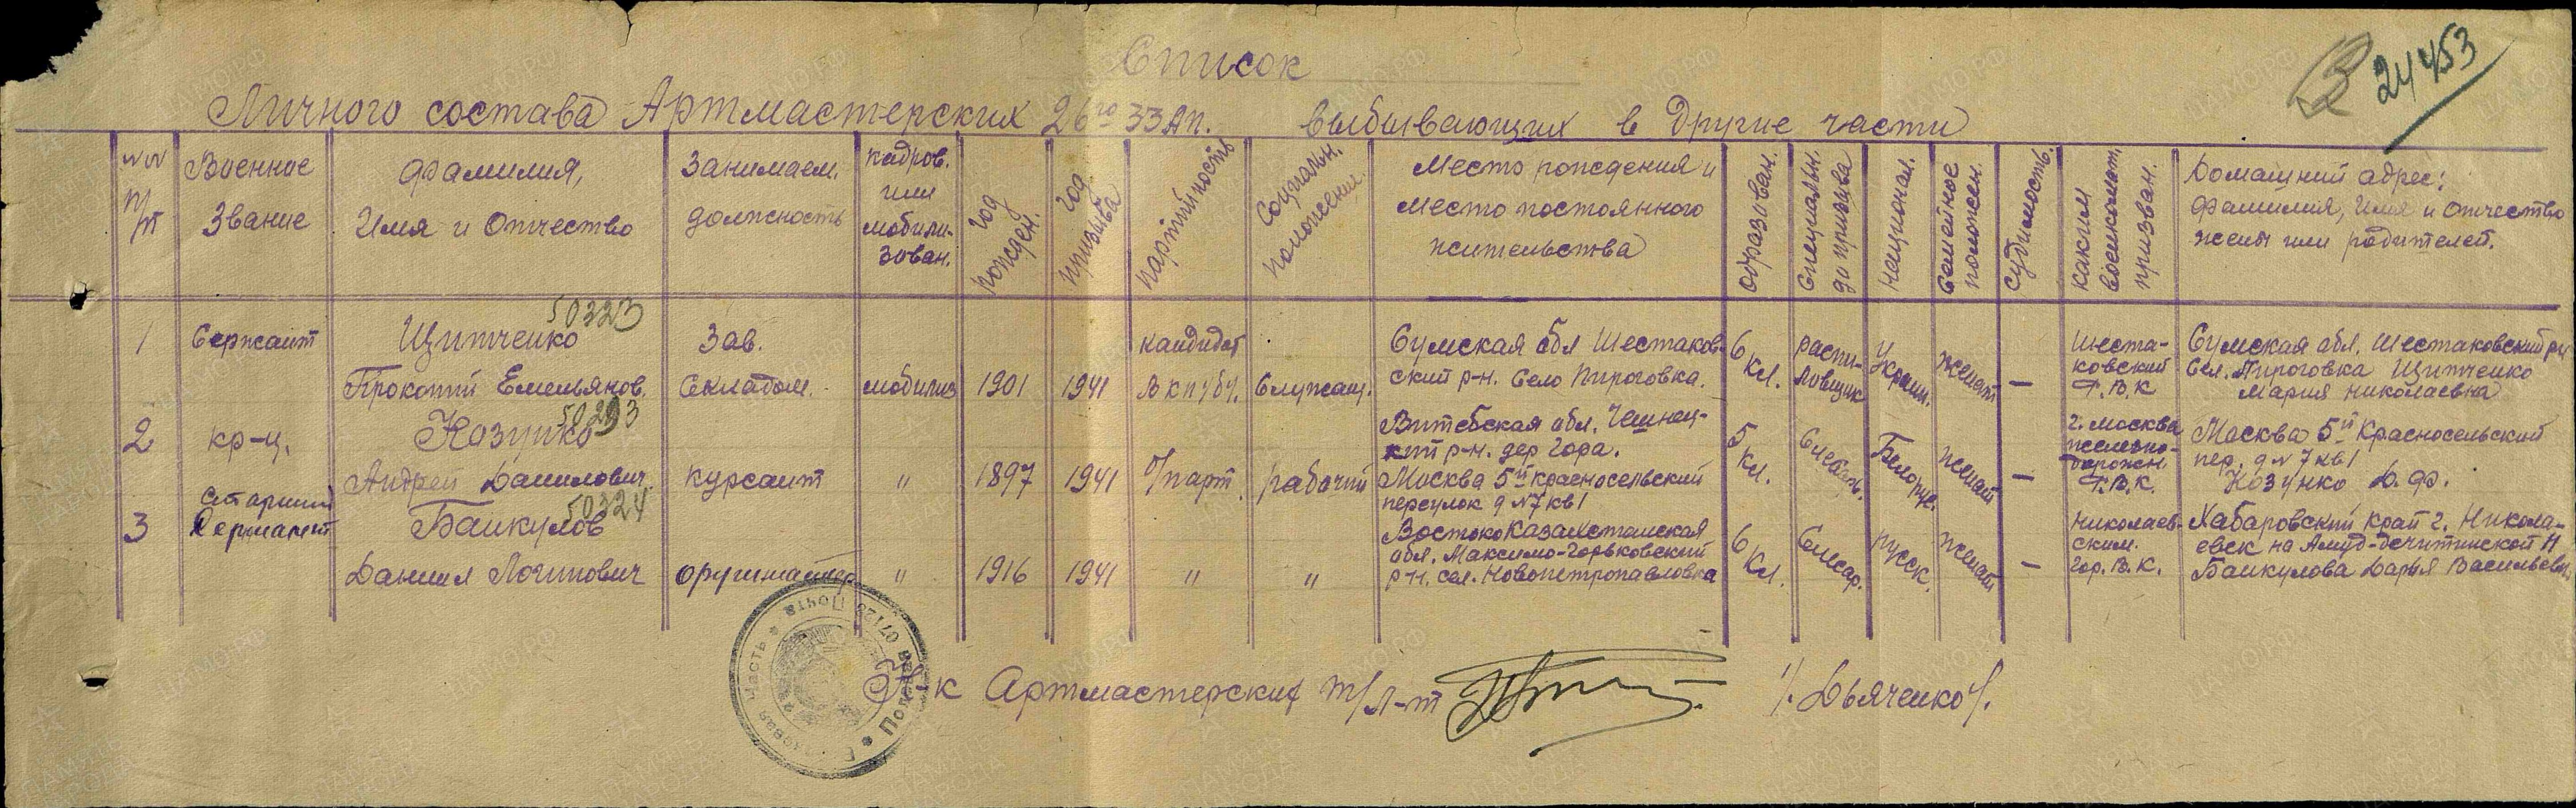 Список
24453
Личного состава Артмастерских 26го 33 Ап. выбывающих в другие части
№№ п/п
Военное звание
Фамилия, Имя и Отчество
Занимаем. должность
кадров. или мобили-зован.
год рожден.
год призыва
партийность
Социальн. положение.
Место рождения и место постоянного жительства
образован.
специальн. до призыва
национал.
Семейное положен.
Судимость.
каким военкомат. призван.
Домашний адрес: фамилия, Имя и Отчество жены или родителей.
50323
1 Сержант Щитченко Зав. кандидат Сумская обл Шестаков- 6 распи- Украин. женат — Шеста- Сумская обл. Шестаковский р-н
Прокопий Емельянов. Складом. мобилиз 1901 1941 ВКП/б/. Служащ. ский р-н. Село Пироговка. кл. ловщик ковский Сел. Пироговка Щитченко
Р.В.К Мария Николаевна
50293
2 кр-ц. Козунко Витебская обл. Чешнец- 5 Слесарь. Белорус. женат — г. Москва Москва 5й Красносельский
кий р-н. дер Гора. кл. железно- пер. д №7 кв 1
Андрей Данилович. курсант " 1897 1941 б/парт. рабочий Москва 5й красносельский дорожн. Козунко Д.Ф.
переулок д №7 кв 1 Р.В.К.
50324
3 Старший Сержант Байкулов Востоко Казахстанская 6 Слесар. русск. женат — Николаев- Хабаровский край г. Никола-
обл. Максимо-Горьковский кл. ским. евск на Амуре
Даниил Логинович оружмастер " 1916 1941 " " р-н. сел. Новопетропавловка гор. В.К. Байкулова Дарья Васильевн.
Н-к Артмастерских т/л-т /. Дьяченко/.
Полевая Почта 07128
часть
ПАМЯТЬ НАРОДА
ЦАМО.РФ